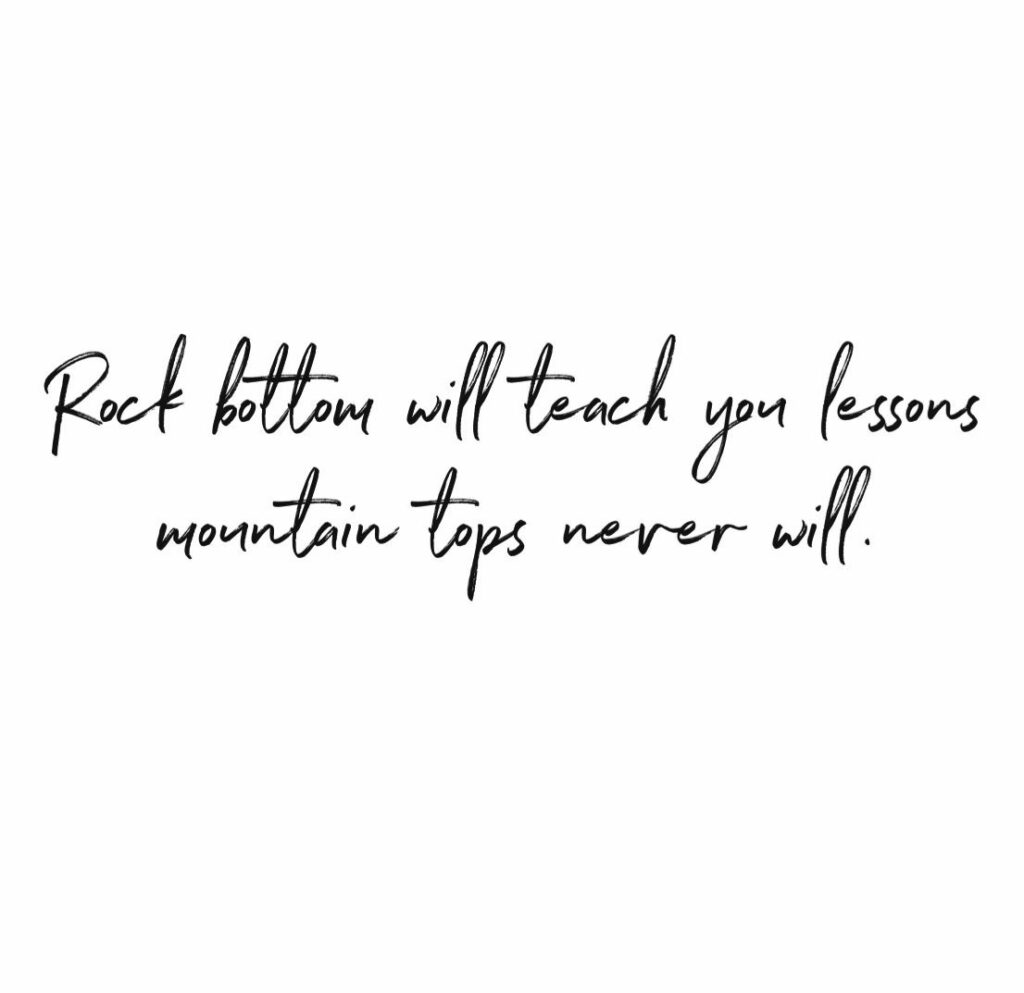 Rock bottom will teach you lessons
mountain tops never will.